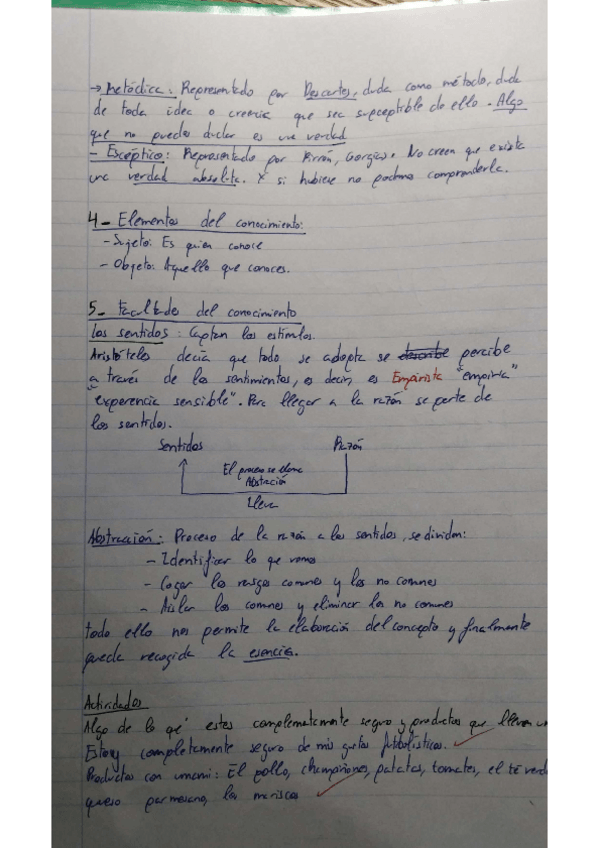 → Metódica: Representado por Descartes, duda como método, duda
de toda idea o creencia que sea susceptible de ello. Algo
que no puedes dudar es una verdad
- Escéptico: Representado por Pirrón, Gorgias. No creen que exista
una verdad absoluta. Y si hubiese no podrían comprenderla.
4_ Elementos del conocimiento:
- Sujeto: Es quien conoce
- Objeto: Aquello que conoces.
5_ Facultades del conocimiento
Los sentidos: Captan los estímulos.
Aristóteles decía que todo se adopta se describe percibe
a través de los sentimientos, es decir, es Empirista "empiria"
"experencia sensible". Para llegar a la razón se parte de
los sentidos.
Sentidos Razón
El proceso se llama
Abstración
Lleva
Abstracción: Proceso de la razón a los sentidos, se dividen:
- Identificar lo que vemos
- Coger los rasgos comunes y los no comunes
- Aislar los comunes y eliminar los no comunes
todo ello nos permite la elaboración del concepto y finalmente
queda recogida la esencia.
Actividades
Algo de lo qe' estes complematemente seguro y productos que lleven un
Estoy completamente seguro de mis gustos futbolísticos.
Productos con umami: El pollo, champiñones, patatas, tomates, el té verde
queso parmesano, los mariscos